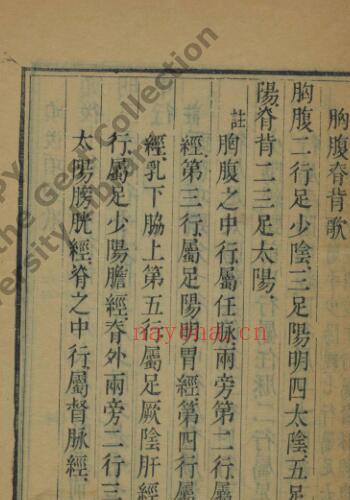 胸腹脊背歌
胸腹二行足少陰三足陽明四太陰五足
陽脊背二三足太陽
註
胸腹之中行屬任脉兩旁第二行屬
經第三行屬足陽明胃經第四行屬
經乳下脇上第五行屬足厥陰肝經
行屬足少陽膽經脊外兩旁二行三
太陽膀胱經脊之中行屬督脉經
the Gest Collection
ersity Library
nayona.cn